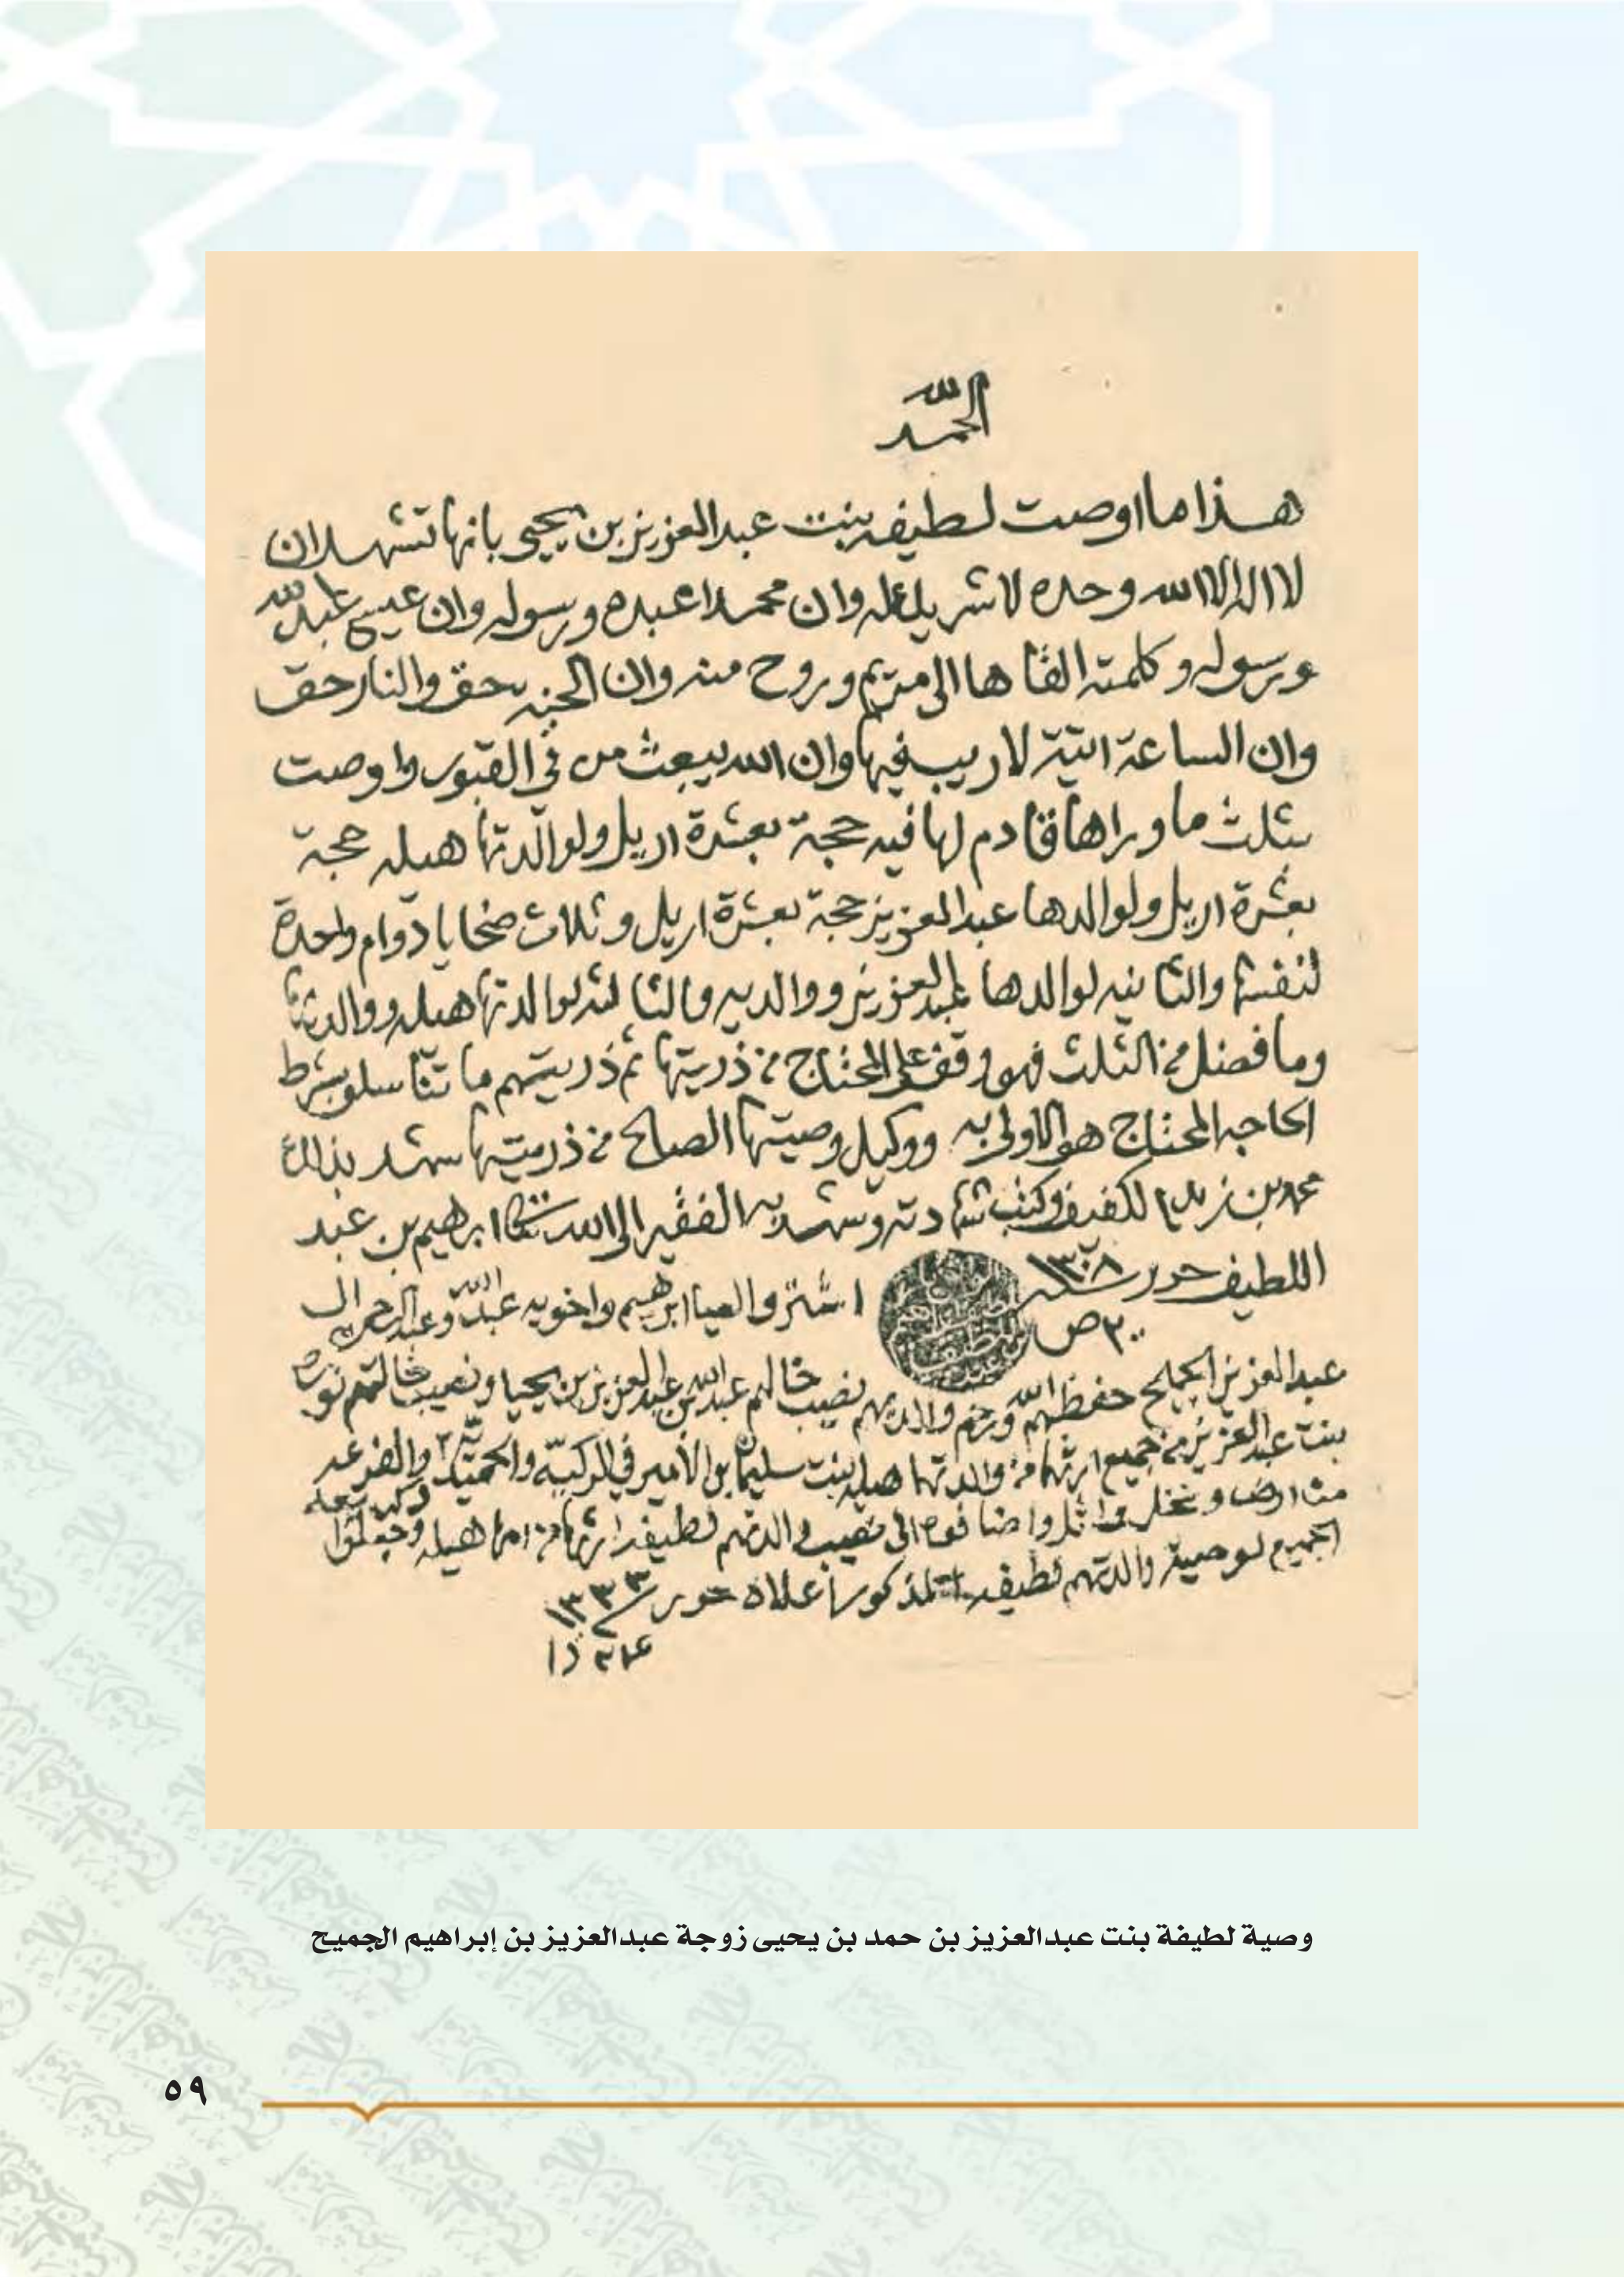 الحمد لله
هذا ما اوصت لطيفه بنت عبدالعزيز بن يحيى بانها تشهد ان
لا اله الا الله وحده لا شريك له وان محمدا عبده ورسوله وان عيسى عبدالله
ورسوله وكلمته القاها الى مريم وروح منه وان الجنه حق والنار حق
وان الساعة اتية لا ريب فيها وان الله يبعث من في القبور واوصت
بثلث ما وراها قادم لها فيه حجة بعشرة اريل ولوالدتها هيله حجة
بعشرة اريل ولوالدها عبدالعزيز حجة بعشرة اريل وثلاث ضحايا دوام واحدة
لنفسها والثانيه لوالدها عبدالعزيز ووالديه والثالثه لوالدتها هيله ووالديها
وما فضل من الثلث فهو وقف على المحتاج من ذريتها ثم ذريتهم ما تناسلو بشرط
الحاجه المحتاج هو الاولى به ووكيل وصيتها الصالح من ذريتها شهد بذالك
محمد بن الكفيف وكتب شهادته وشهد به الفقير الى الله ابرهيم بن عبد
اللطيف حرر سنة ١٣٠٨
٢٠ ص
اشتروا العيال ابرهيم واخويه عبدالله وعبدالرحمن ال
عبدالعزيز الجميح حفظهم الله ورحم والديهم نصيب خالهم عبدالله بن عبدالعزيز بن يحيا ونصيب خالتهم نوره
بنت عبدالعزيز من جميع ارثهما من والدتهما هيله بنت سليمان الامير في الركيه والفرعه
من ارض ونخل واثل واضافوه الى نصيب والدتهم لطيفه ارثها من امها هيله وجعلوا
الجميع لوصية والدتهم لطيفه المذكور اعلاه حرر ١٣٣٣
وصية لطيفة بنت عبدالعزيز بن حمد بن يحيى زوجة عبدالعزيز بن إبراهيم الجميح
٥٩